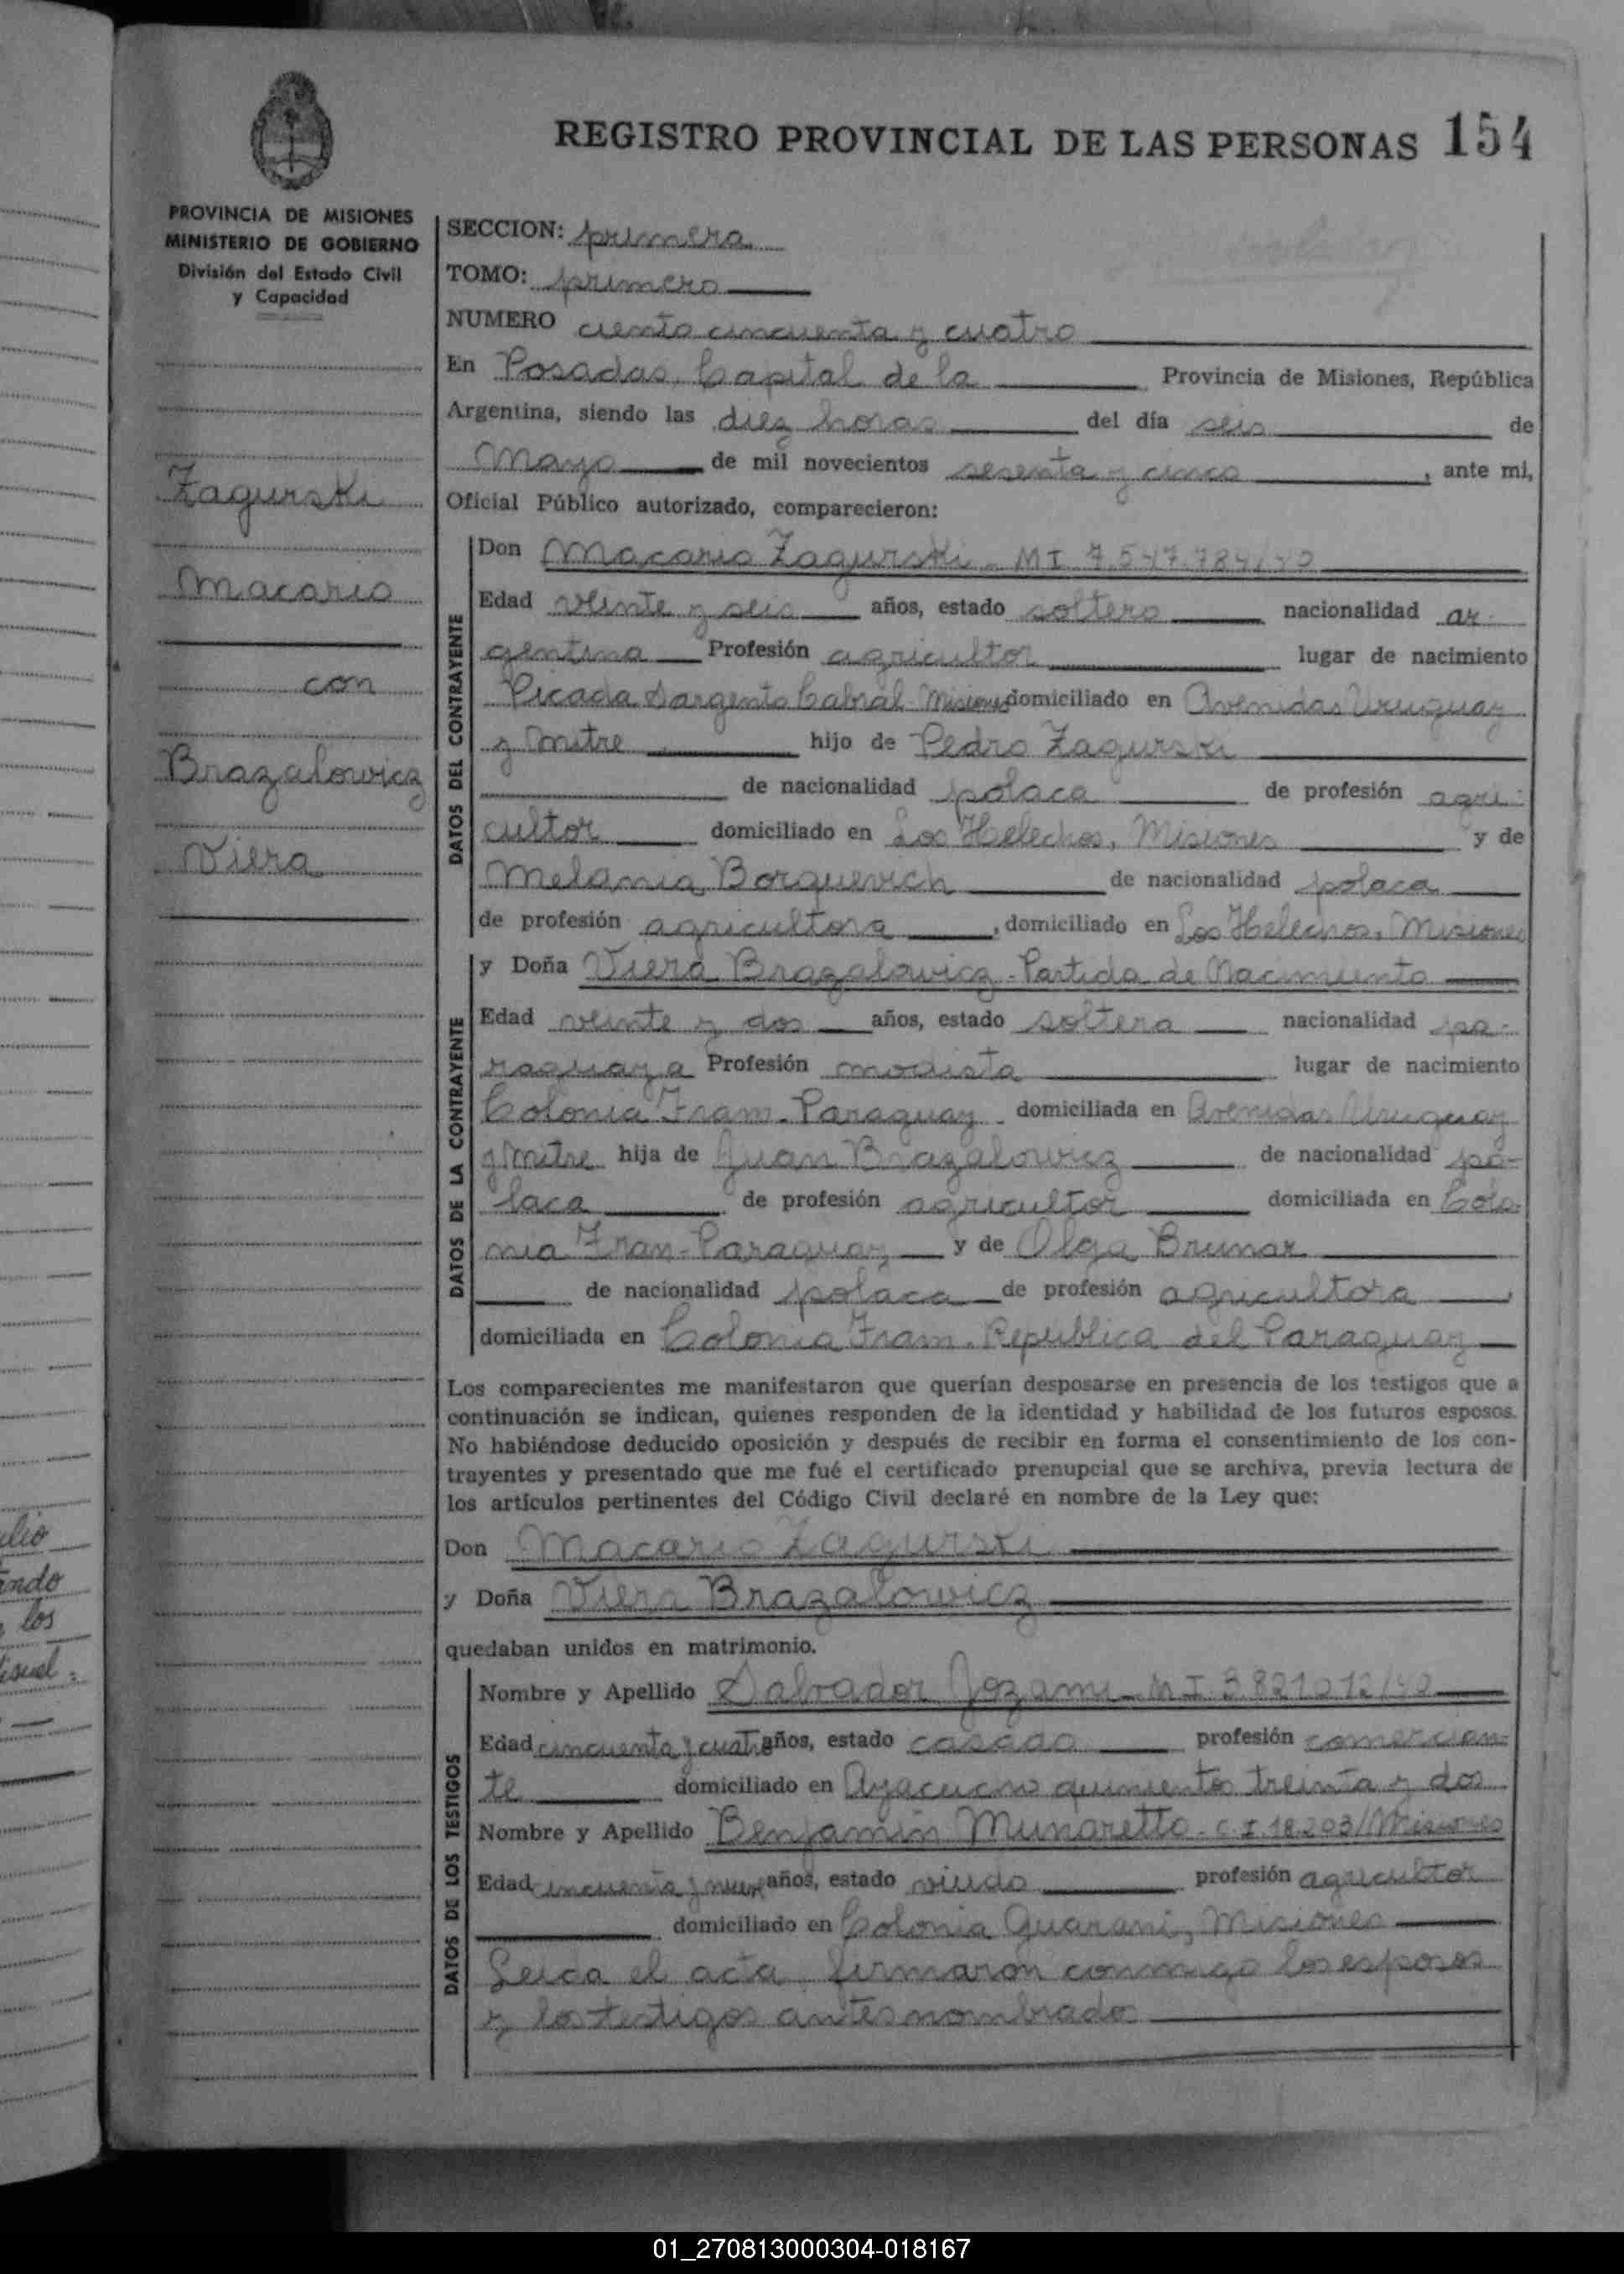 REGISTRO PROVINCIAL DE LAS PERSONAS 154
PROVINCIA DE MISIONES
MINISTERIO DE GOBIERNO
División del Estado Civil
y Capacidad
Zagurski
Macario
con
Brazalowicz
Viera
SECCION: primera
TOMO: primero
NUMERO ciento cincuenta y cuatro
En Posadas, Capital de la Provincia de Misiones, República
Argentina, siendo las diez horas del día seis de
Mayo de mil novecientos sesenta y cinco, ante mi,
Oficial Público autorizado, comparecieron:
DATOS DEL CONTRAYENTE
Don Macario Zagurski - MI 7.547.784/40
Edad veinte y seis años, estado soltero nacionalidad ar-
gentina Profesión agricultor lugar de nacimiento
Picada Sargento Cabral - Misiones domiciliado en Avenidas Uruguay
y Mitre hijo de Pedro Zagurski
de nacionalidad polaca de profesión agri-
cultor domiciliado en Los Helechos, Misiones y de
Melania Borquevich de nacionalidad polaca
de profesión agricultora, domiciliado en Los Helechos, Misiones
DATOS DE LA CONTRAYENTE
y Doña Viera Brazalowicz - Partida de Nacimiento
Edad veinte y dos años, estado soltera nacionalidad pa-
raguaya Profesión modista lugar de nacimiento
Colonia Fram - Paraguay domiciliada en Avenidas Uruguay
y Mitre hija de Juan Brazalowicz de nacionalidad po-
laca de profesión agricultor domiciliada en Colo-
nia Fran - Paraguay y de Olga Brunar
de nacionalidad polaca de profesión agricultora,
domiciliada en Colonia Fram. Republica del Paraguay
Los comparecientes me manifestaron que querían desposarse en presencia de los testigos que a
continuación se indican, quienes responden de la identidad y habilidad de los futuros esposos.
No habiéndose deducido oposición y después de recibir en forma el consentimiento de los con-
trayentes y presentado que me fué el certificado prenupcial que se archiva, previa lectura de
los artículos pertinentes del Código Civil declaré en nombre de la Ley que:
Don Macario Zagurski
y Doña Viera Brazalowicz
quedaban unidos en matrimonio.
DATOS DE LOS TESTIGOS
Nombre y Apellido Salvador Jozami - MI 3.821.012/40
Edad cincuenta y cuatro años, estado casado profesión comercian-
te domiciliado en Ayacucho quinientos treinta y dos
Nombre y Apellido Benjamin Munaretto - C.I. 18.203/Misiones
Edad cincuenta y nueve años, estado viudo profesión agricultor
domiciliado en Colonia Guarani, Misiones
Leida el acta, firmaron conmigo los esposos
y los testigos antes nombrados
ando
los
01_270813000304-018167